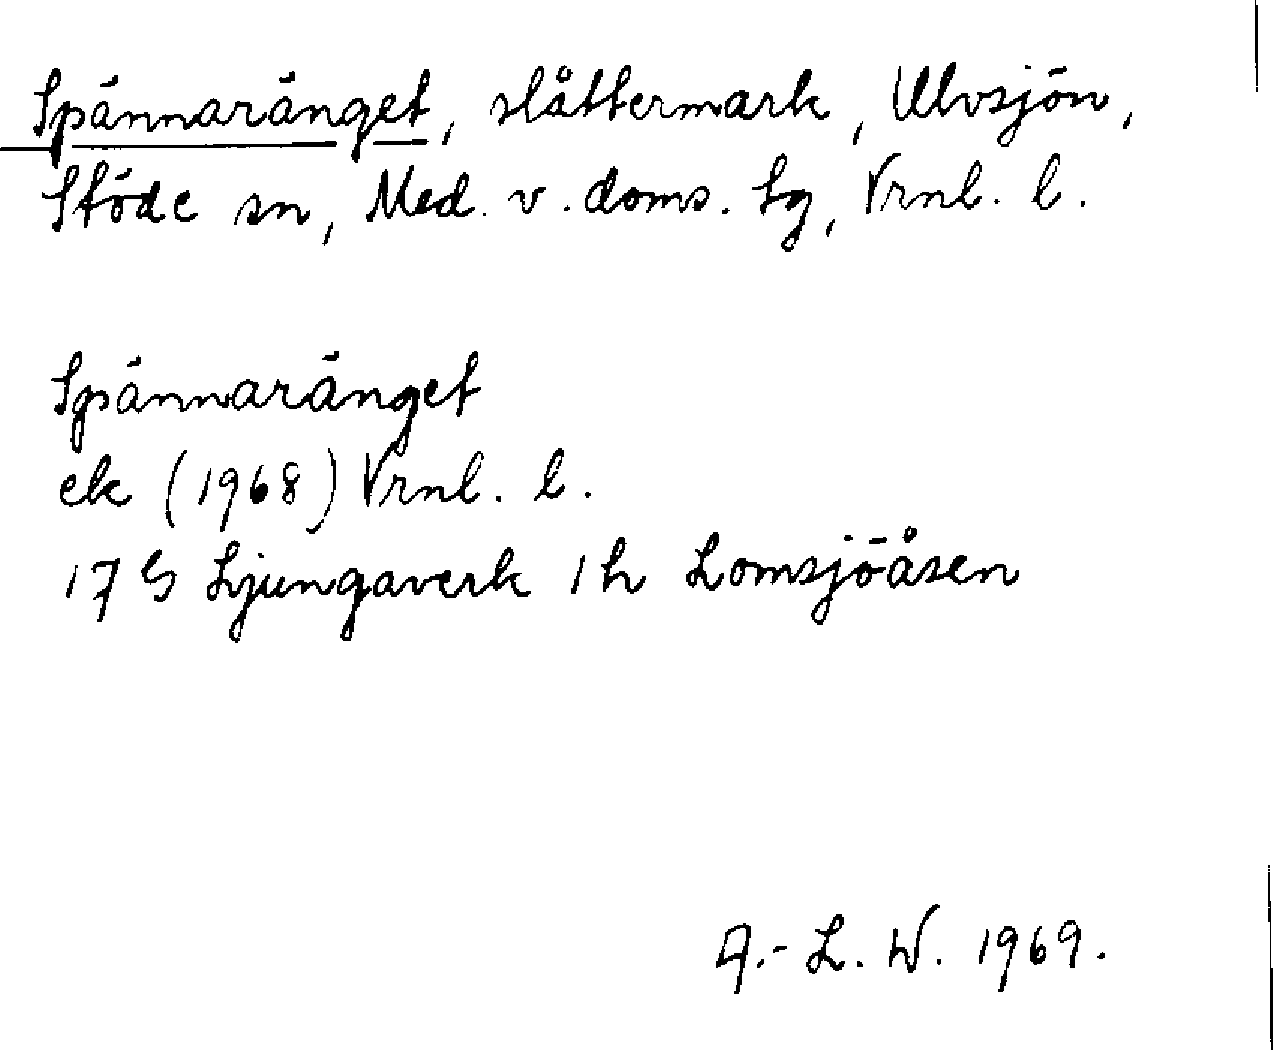 Spännaränget, slåttermark, Ulvsjön,
Stöde sn, Med. v. doms. tg, Vrnl. l.
Spännaränget
ek (1968) Vrnl. l.
17 G Ljungaverk 1 h Lomsjöåsen
A.-L. W. 1969.